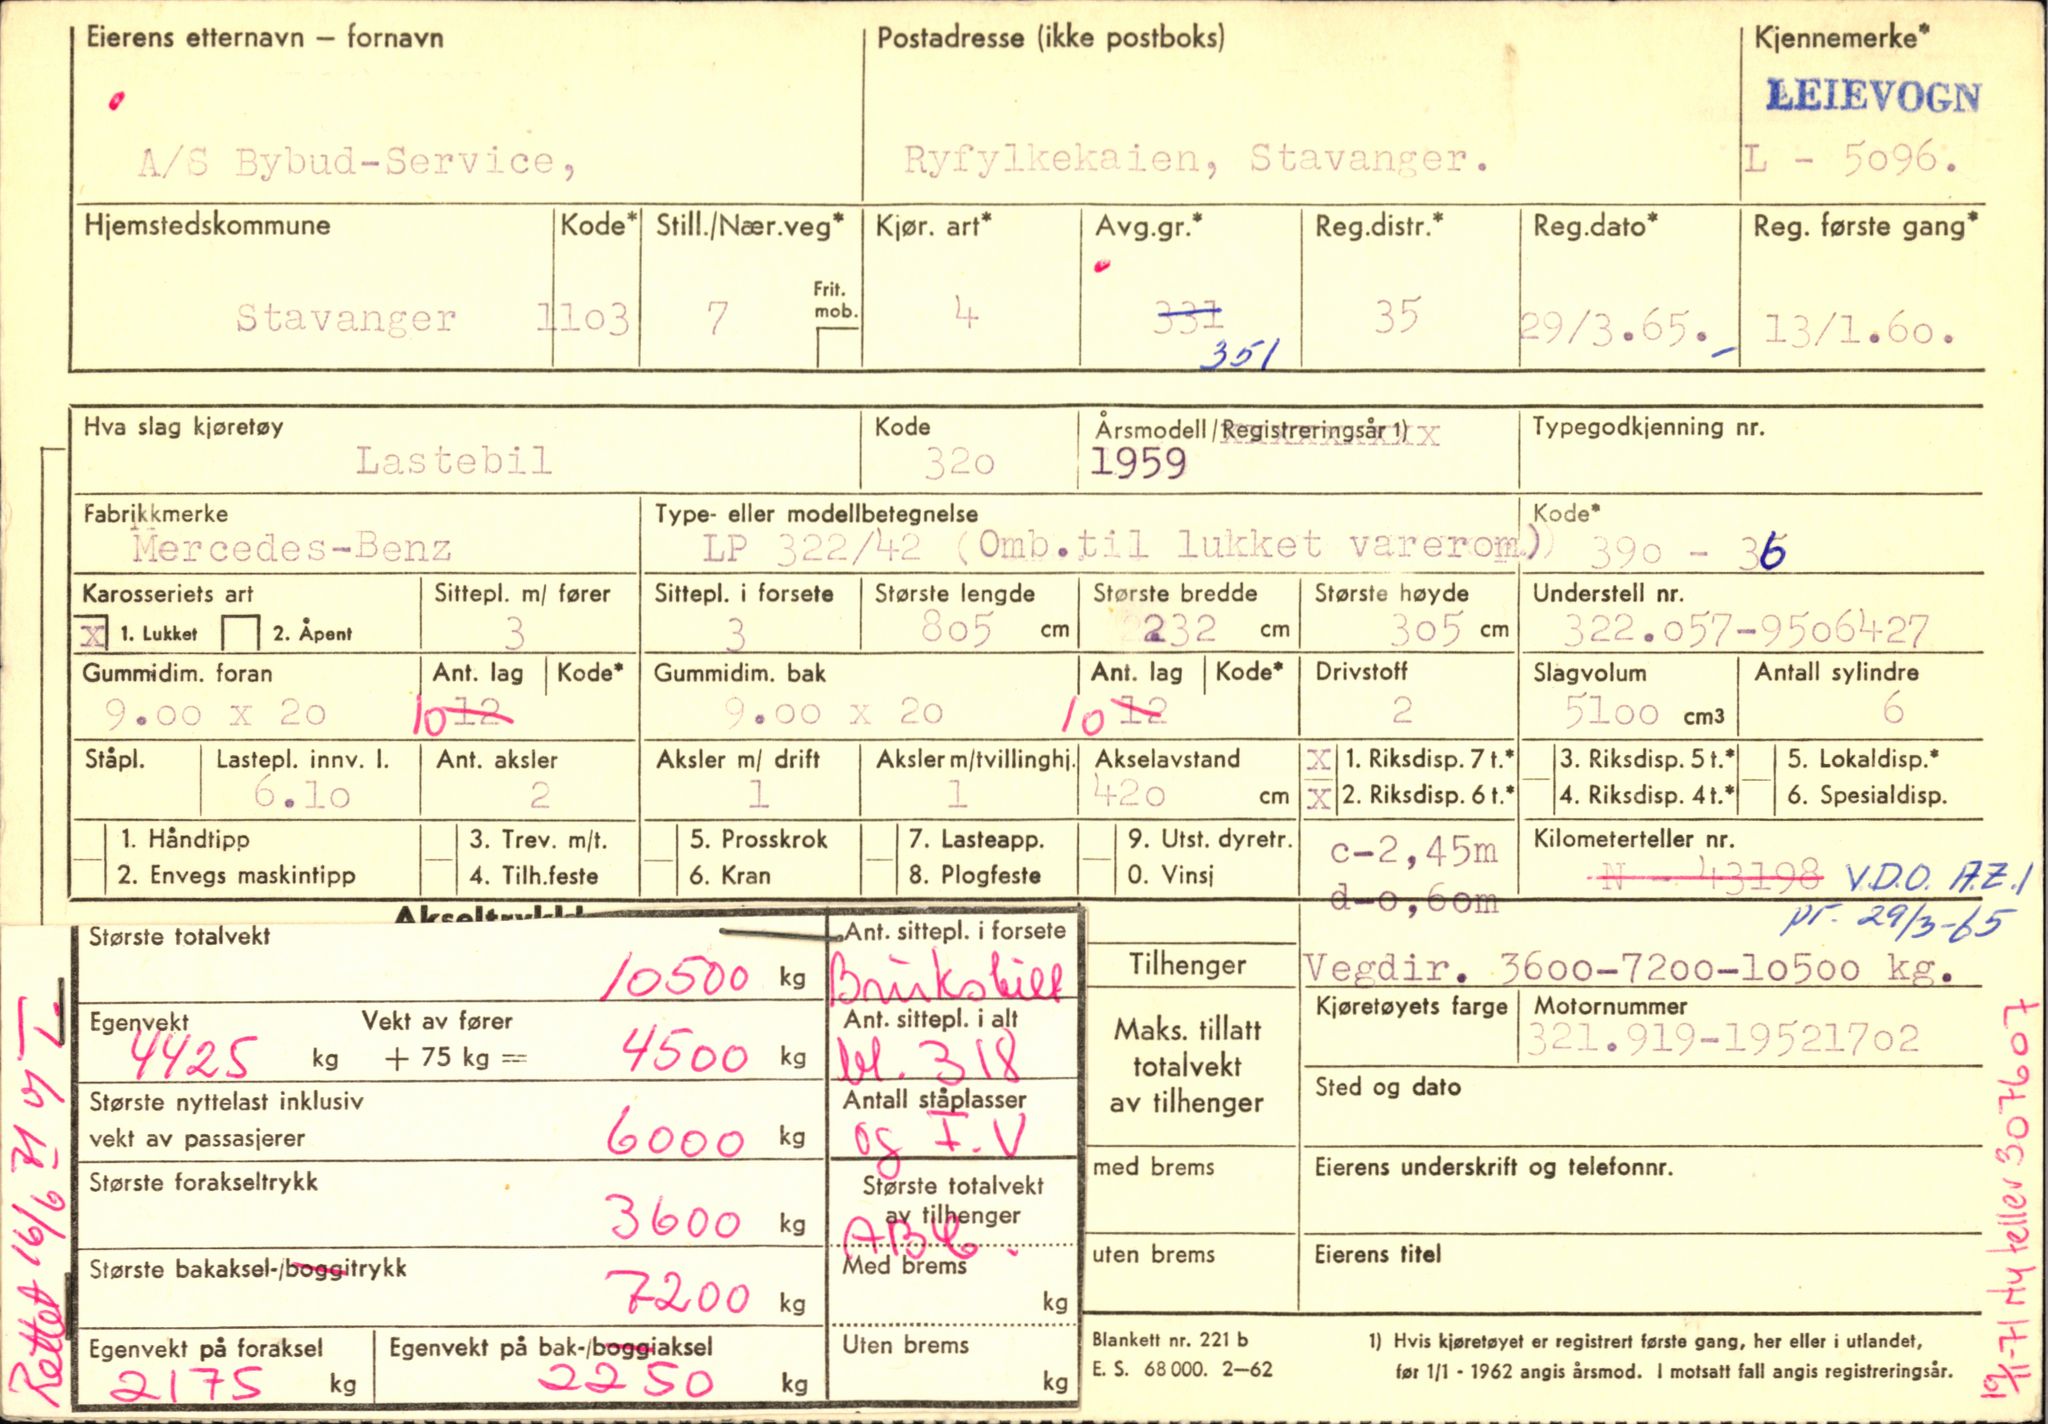 Eierens etternavn – fornavn Postadresse (ikke postboks) Kjennemerke*
LEIEVOGN
A/S Bybud-Service, Ryfylkekaien, Stavanger. L - 5096.
Hjemstedskommune Kode* Still./Nær.veg* Kjør. art* Avg.gr.* Reg.distr.* Reg.dato* Reg. første gang*
Frit. mob.
Stavanger 1103 7 4 331 35 29/3.65. 13/1.60.
351
Hva slag kjøretøy Kode Årsmodell/Registreringsår 1) Typegodkjenning nr.
Lastebil 320 1959
Fabrikkmerke Type- eller modellbetegnelse Kode*
Mercedes-Benz LP 322/42 (Omb.til lukket varerom) 390 - 36
Karosseriets art Sittepl. m/ fører Sittepl. i forsete Største lengde Største bredde Største høyde Understell nr.
x 1. Lukket 2. Åpent 3 3 805 cm 232 cm 305 cm 322.057-9506427
Gummidim. foran Ant. lag Kode* Gummidim. bak Ant. lag Kode* Drivstoff Slagvolum Antall sylindre
9.00 x 20 10 12 9.00 x 20 10 12 2 5100 cm3 6
Ståpl. Lastepl. innv. l. Ant. aksler Aksler m/ drift Aksler m/tvillinghj. Akselavstand x 1. Riksdisp. 7 t.* 3. Riksdisp. 5 t.* 5. Lokaldisp.*
6.10 2 1 1 420 cm x 2. Riksdisp. 6 t.* 4. Riksdisp. 4 t.* 6. Spesialdisp.
1. Håndtipp 3. Trev. m/t. 5. Prosskrok 7. Lasteapp. 9. Utst. dyretr. c-2,45m Kilometerteller nr.
2. Envegs maskintipp 4. Tilh.feste 6. Kran 8. Plogfeste 0. Vinsj d-0,60m N - 43198 V.D.O. A.Z.1
pr. 29/3-65
Største totalvekt 10500 kg Ant. sittepl. i forsete
Bruksbill
Tilhenger Vegdir. 3600-7200-10500 kg.
Egenvekt Vekt av fører Ant. sittepl. i alt
4425 kg + 75 kg = 4500 kg kl. 318
Maks. tillatt totalvekt av tilhenger Kjøretøyets farge Motornummer
321.919-19521702
Største nyttelast inklusiv Antall ståplasser Sted og dato
vekt av passasjerer 6000 kg og I.V
Største forakseltrykk 3600 kg Største totalvekt av tilhenger
med brems Eierens underskrift og telefonnr.
Største bakaksel-/boggitrykk 7200 kg Med brems
kg
uten brems Eierens titel
Egenvekt på foraksel Egenvekt på bak-/boggiaksel Uten brems
2175 kg 2250 kg kg
Blankett nr. 221 b 1) Hvis kjøretøyet er registrert første gang, her eller i utlandet,
E. S. 68 000. 2–62 før 1/1 - 1962 angis årsmod. I motsatt fall angis registreringsår.
Rettet 16/6 71
19/11-71 Ny teller 3076607